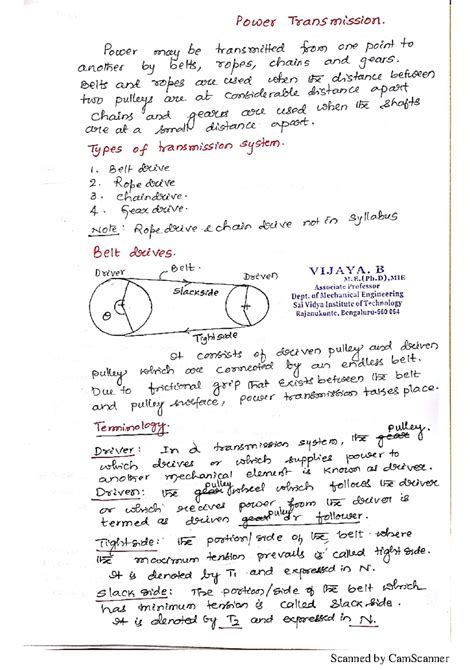 Power Transmission.
Power may be transmitted from one point to
another by belts, ropes, chains and gears.
Belts and ropes are used when the distance between
two pulleys are at considerable distance apart
chains and gears are used when the shafts
are at a small distance apart.
Types of transmission system.
1. Belt drive
2. Rope drive
3. chaindrive.
4. Gear drive.
Note: Rope drive & chain drive not in syllabus
Belt drives.
Driver
Belt.
Driven
Slackside
θ
Tightside
VIJAYA. B
M.E.(Ph.D),MIE
Associate Professor
Dept. of Mechanical Engineering
Sai Vidya Institute of Technology
Rajanukunte, Bengaluru-560 064
It consists of driven pulley and driven
pulley which are connected by an endless belt.
Due to frictional grip that exists between the belt
and pulley surface, power transmission takes place.
Terminology.
Driver: In a transmission system, the gear pulley.
which drives or which supplies power to
another mechanical element is known as driver.
Driven: the gear pulley wheel which follows the driver
or which receives power from the driver is
termed as driven gear pulley or follower.
Tight side: the portion/side of the belt where
the maximum tension prevails is called tight side.
It is denoted by T1 and expressed in N.
Slack side: The portion/side of the belt which
has minimum tension is called Slack side.
It is denoted by T2 and expressed in N.
Scanned by CamScanner